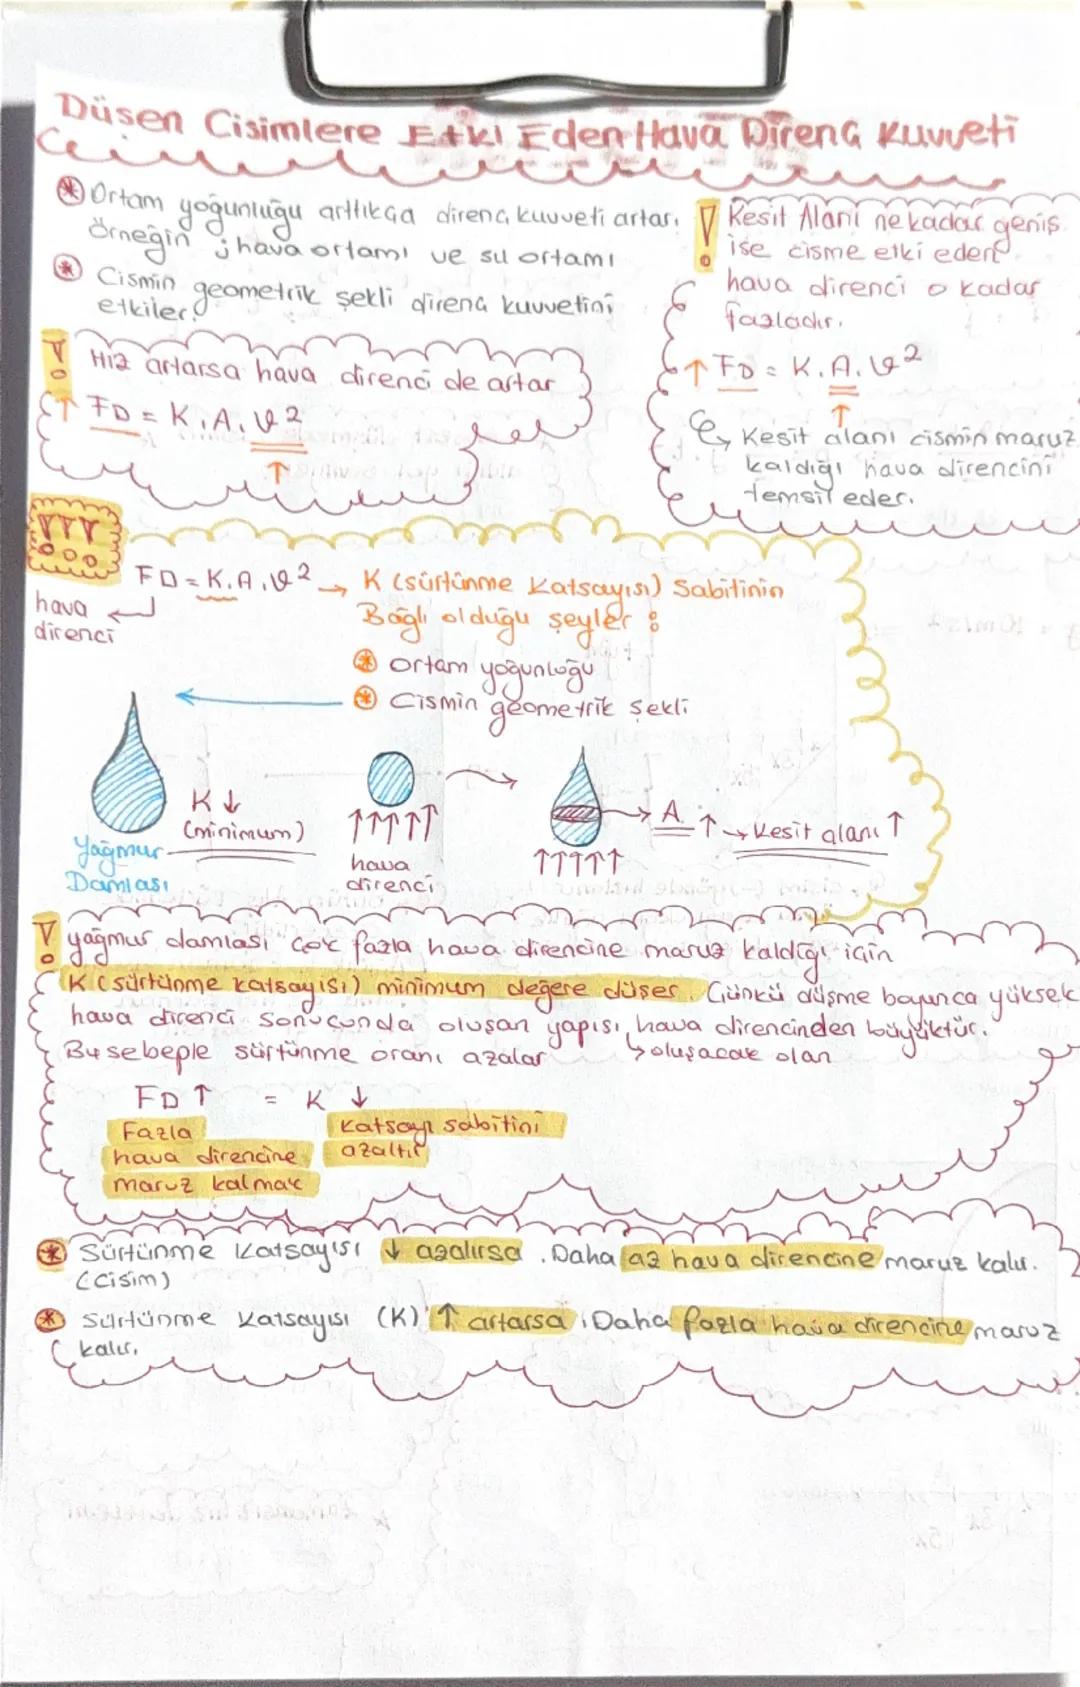 Düşen Cisimlere Etki Eden Hava Direnç Kuvveti
Ortam yoğunluğu arttıkça direnç kuvveti artar.
Örneğin ; hava ortamı ve su ortamı
Cismin geometrik şekli direnç kuvvetini
etkiler.
! Kesit Alanı ne kadar geniş
ise cisme etki eden
hava direnci o kadar
fazladır.
! Hız artarsa hava direnci de artar
↑ FD = K.A.ϑ2
↑
↑ FD = K.A.ϑ2
↑
Kesit alanı cismin maruz
kaldığı hava direncini
temsil eder.
!!!
FD = K.A.ϑ2 → K (sürtünme Katsayısı) Sabitinin
Bağlı olduğu şeyler :
hava
direnci
Ortam yoğunluğu
Cismin geometrik şekli
K ↓
(minimum)
Yağmur
Damlası
↑↑↑↑↑
hava
direnci
→ A ↑ → Kesit alanı ↑
↑↑↑↑↑
! yağmur damlası çok fazla hava direncine maruz kaldığı için
K (sürtünme katsayısı) minimum değere düşer. Çünkü düşme boyunca yüksek
hava direnci sonucunda oluşan yapısı, hava direncinden büyüktür.
Bu sebeple sürtünme oranı azalar
↳ oluşacak olan
FD ↑ = K ↓
Fazla
hava direncine
maruz kalmak
katsayı sabitini
azaltır
Sürtünme Katsayısı ↓ azalırsa . Daha az hava direncine maruz kalır.
(cisim)
Sürtünme Katsayısı (K) ↑ artarsa , Daha fazla hava direncine maruz
kalır.